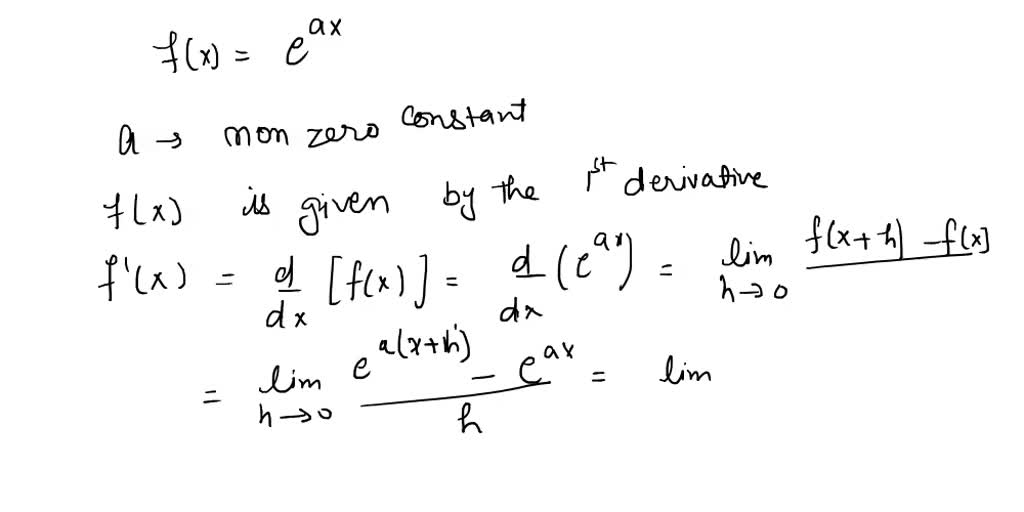 f(x) = e^{ax}
a → non zero constant
f(x) is given by the 1^{st} derivative
f'(x) = \frac{d}{dx} [f(x)] = \frac{d}{dx} (e^{ax}) = \lim_{h→0} \frac{f(x+h) - f(x)}{}
= \lim_{h→0} \frac{e^{a(x+h)} - e^{ax}}{h} = lim